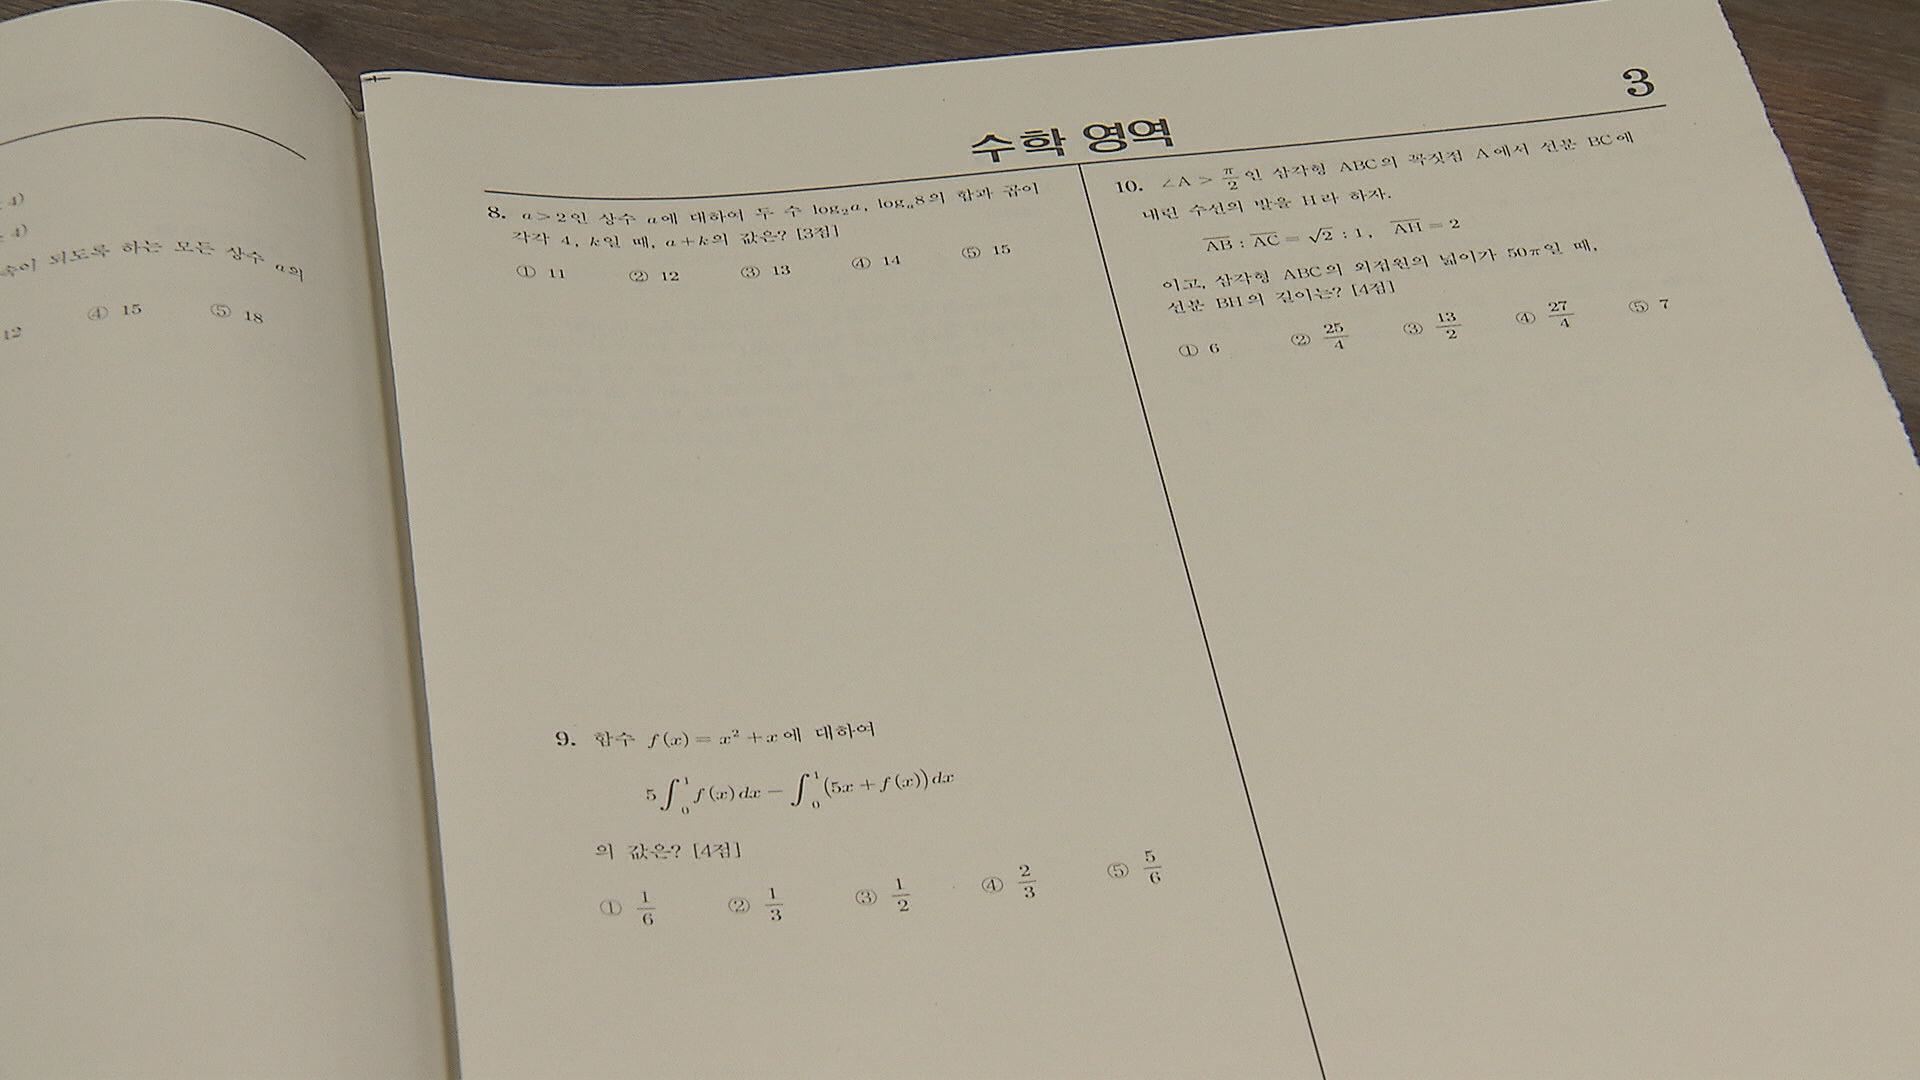 4)
4)
속이 되도록 하는 모든 상수 a의
12 ④ 15 ⑤ 18
수학 영역
3
8. a>2인 상수 a에 대하여 두 수 log₂a, logₐ8의 합과 곱이
각각 4, k일 때, a+k의 값은? [3점]
① 11 ② 12 ③ 13 ④ 14 ⑤ 15
9. 함수 f(x)=x²+x에 대하여
5∫₀¹f(x)dx-∫₀¹(5x+f(x))dx
의 값은? [4점]
① 1/6 ② 1/3 ③ 1/2 ④ 2/3 ⑤ 5/6
10. ∠A>π/2인 삼각형 ABC의 꼭짓점 A에서 선분 BC에
내린 수선의 발을 H라 하자.
AB : AC = √2 : 1, AH = 2
이고, 삼각형 ABC의 외접원의 넓이가 50π일 때,
선분 BH의 길이는? [4점]
① 6 ② 25/4 ③ 13/2 ④ 27/4 ⑤ 7